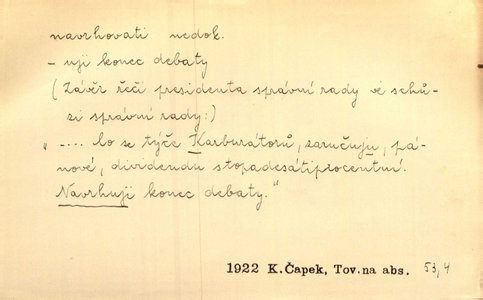 navrhovati nedok.
- uji konec debaty
(Závěr řeči presidenta správní rady ve schů-
zi správní rady:)
".... Co se týče Karburátorů, zaručuju, pá-
nové, dividendu stopadesátiprocentní.
Navrhuji konec debaty."
1922 K.Čapek, Tov.na abs. 53,4